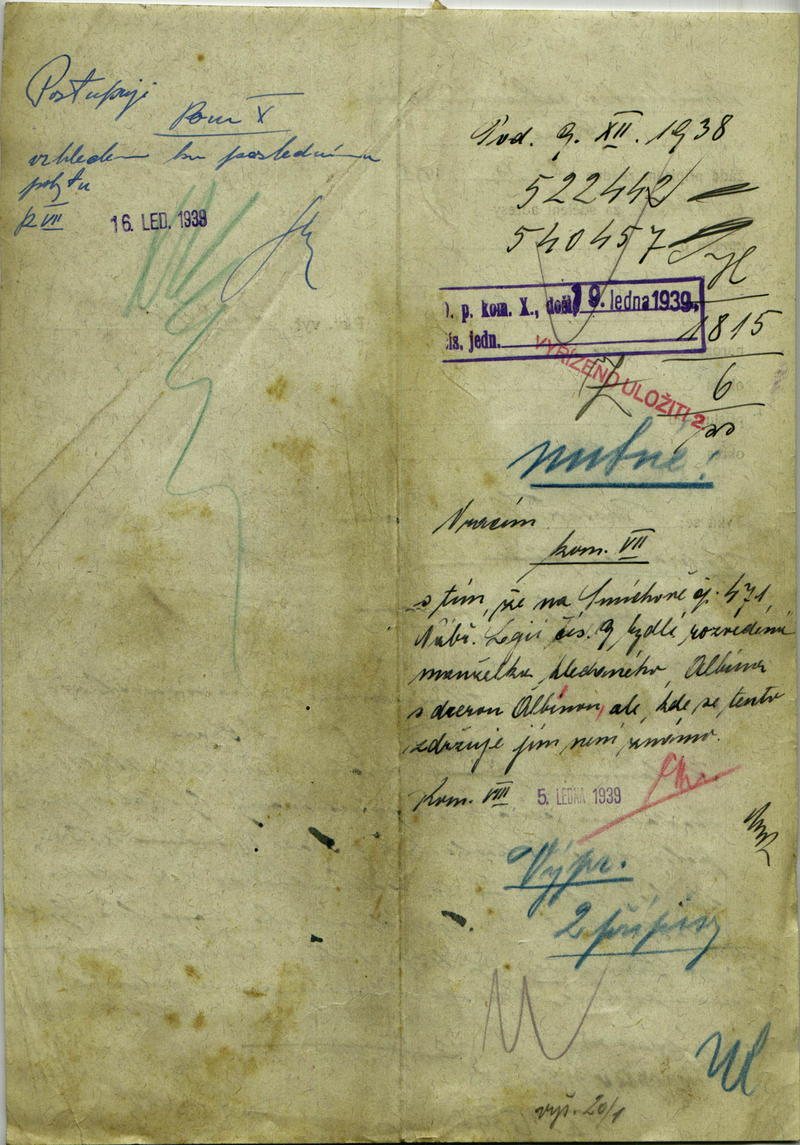 Postupuji
Kom X
vzhledem ku poslednímu
pobytu
K VII
16. LED. 1939
Pod. 9. XII. 1938
522442
540457
O. p. kom. X., došl. 19. ledna 1939,
čís. jedn. 1815
6
VYŘÍZENO ULOŽITI 2.
nutné!
Vracím
kom. VII
s tím, že na Smíchově čp. 471
Nábř. Legií čís. 9 bydlí rozvedená
manželka hledaného, Albina
s dcerou Albinou, ale, kde se tento
zdržuje jim není známo.
Kom. VIII 5. LEDNA 1939
Výpr.
2 přípisy
vyš. 20/1